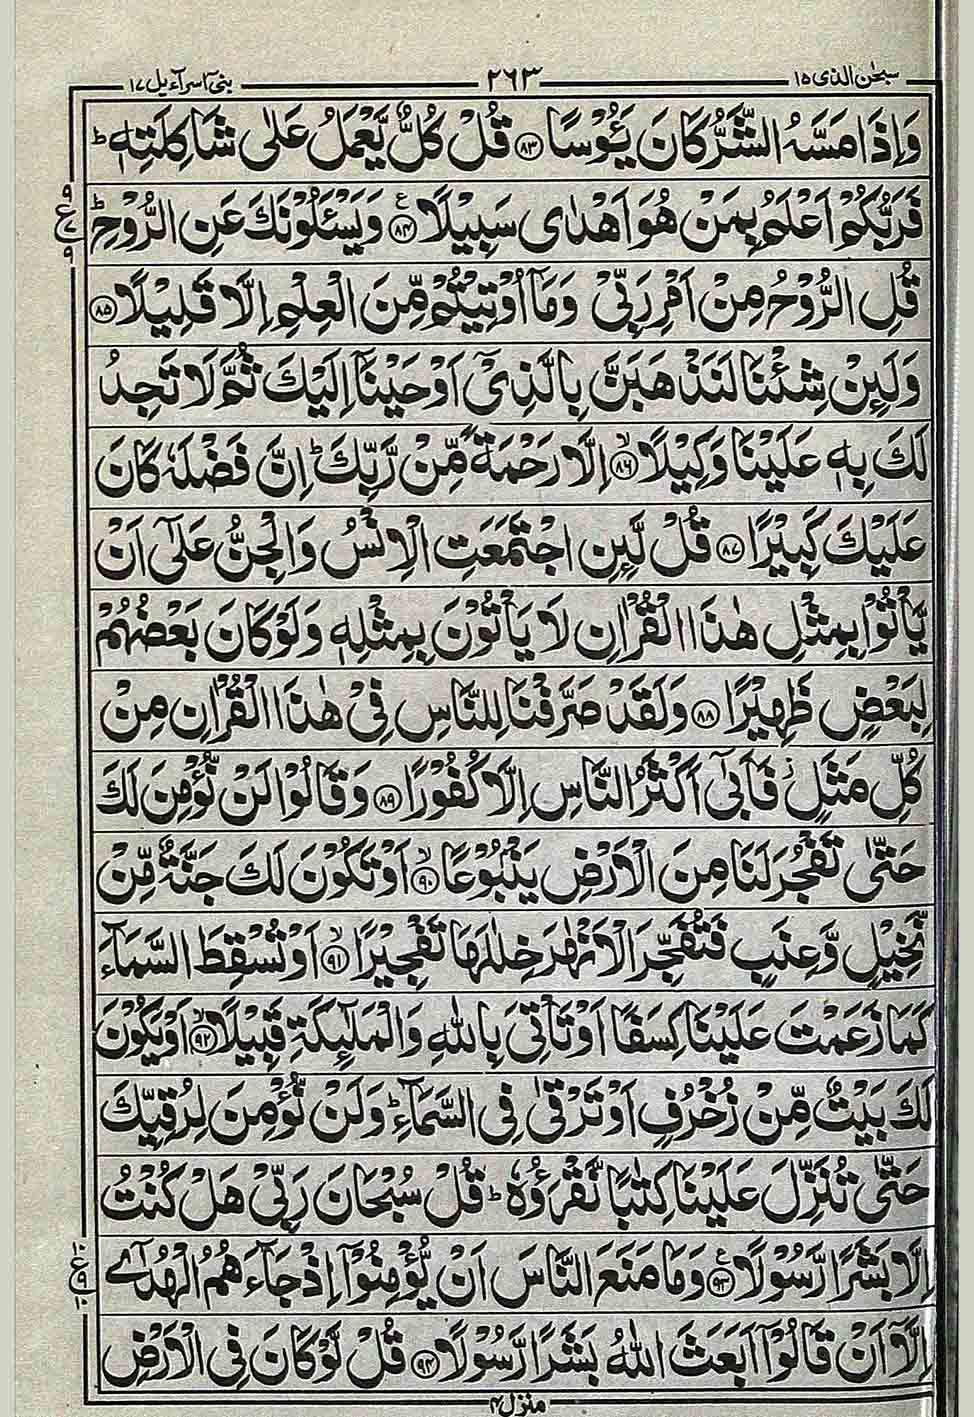 سبحٰن الذی ۱۵ ۲۶۳ بنیٓ اسرآءیل ۱۷
وَاِذَا مَسَّهُ الشَّرُّ كَانَ يَـُٔوْسًا ۸۳ قُلْ كُلٌّ يَّعْمَلُ عَلٰى شَاكِلَتِهٖ ؕ
فَرَبُّكُمْ اَعْلَمُ بِمَنْ هُوَ اَهْدٰى سَبِيْلًا ۸۴ ع وَيَسْـَٔلُوْنَكَ عَنِ الرُّوْحِ ؕ
ع ۹ ۹
قُلِ الرُّوْحُ مِنْ اَمْرِ رَبِّىْ وَمَاۤ اُوْتِيْتُمْ مِّنَ الْعِلْمِ اِلَّا قَلِيْلًا ۸۵
وَلَىِٕنْ شِئْنَا لَنَذْهَبَنَّ بِالَّذِىْۤ اَوْحَيْنَاۤ اِلَيْكَ ثُمَّ لَا تَجِدُ
لَكَ بِهٖ عَلَيْنَا وَكِيْلًا ۸۶ ۙ اِلَّا رَحْمَةً مِّنْ رَّبِّكَ ؕ اِنَّ فَضْلَهٗ كَانَ
عَلَيْكَ كَبِيْرًا ۸۷ قُلْ لَّىِٕنِ اجْتَمَعَتِ الْاِنْسُ وَالْجِنُّ عَلٰٓى اَنْ
يَّاْتُوْا بِمِثْلِ هٰذَا الْقُرْاٰنِ لَا يَاْتُوْنَ بِمِثْلِهٖ وَلَوْ كَانَ بَعْضُهُمْ
لِبَعْضٍ ظَهِيْرًا ۸۸ وَلَقَدْ صَرَّفْنَا لِلنَّاسِ فِىْ هٰذَا الْقُرْاٰنِ مِنْ
كُلِّ مَثَلٍ ؗ فَاَبٰٓى اَكْثَرُ النَّاسِ اِلَّا كُفُوْرًا ۸۹ وَقَالُوْا لَنْ نُّؤْمِنَ لَكَ
حَتّٰى تَفْجُرَ لَنَا مِنَ الْاَرْضِ يَنْۢبُوْعًا ۹۰ ۙ اَوْ تَكُوْنَ لَكَ جَنَّةٌ مِّنْ
نَّخِيْلٍ وَّعِنَبٍ فَتُفَجِّرَ الْاَنْهٰرَ خِلٰلَهَا تَفْجِيْرًا ۹۱ ۙ اَوْ تُسْقِطَ السَّمَآءَ
كَمَا زَعَمْتَ عَلَيْنَا كِسَفًا اَوْ تَاْتِىَ بِاللّٰهِ وَالْمَلٰٓىِٕكَةِ قَبِيْلًا ۹۲ ۙ اَوْ يَكُوْنَ
لَكَ بَيْتٌ مِّنْ زُخْرُفٍ اَوْ تَرْقٰى فِى السَّمَآءِ ؕ وَلَنْ نُّؤْمِنَ لِرُقِيِّكَ
حَتّٰى تُنَزِّلَ عَلَيْنَا كِتٰبًا نَّقْرَؤُهٗ ؕ قُلْ سُبْحَانَ رَبِّىْ هَلْ كُنْتُ
اِلَّا بَشَرًا رَّسُوْلًا ۹۳ ع وَمَا مَنَعَ النَّاسَ اَنْ يُّؤْمِنُوْۤا اِذْ جَآءَهُمُ الْهُدٰٓى
۱۰ ع ۹ ۱۰
اِلَّاۤ اَنْ قَالُوْۤا اَبَعَثَ اللّٰهُ بَشَرًا رَّسُوْلًا ۹۴ قُلْ لَّوْ كَانَ فِى الْاَرْضِ
منزل ۴